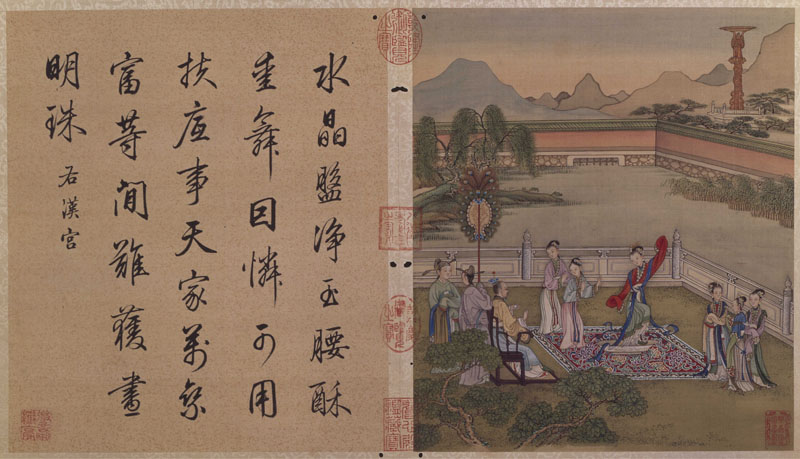 水晶盤净玉腰酥
垂舞囙憐可用
扶底事天家萬乘
富等閒難獲畫
明珠 右漢宮